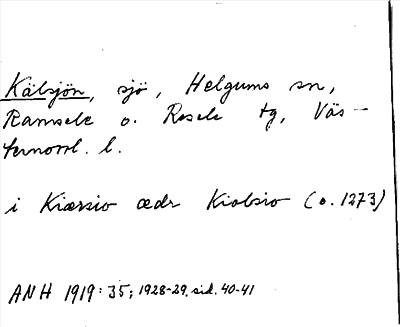 Kälsjön, sjö, Helgums sn,
Ramsele o. Resele tg, Väs-
ternorrl. l.
i Kiærsio ædr Kiolsio (o. 1273)
ANH 1919: 35; 1928-29, sid. 40-41